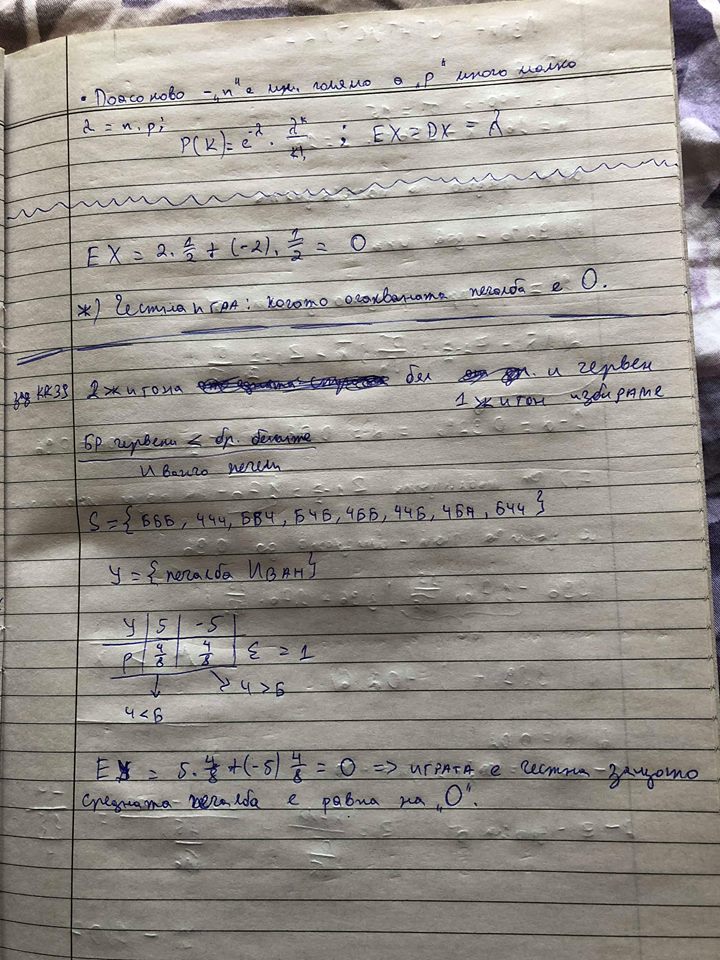 • Поасоново - „n“ е мн. голямо а „p“ много малко
λ = n.p;
P(K) = e^-λ . λ^k/k! ; EX = DX = λ
EX = 2.1/2 + (-2).1/2 = 0
*) Честна игра: когато очакваната печалба е 0.
зад КК39 2 житона бял и червен
1 житон избираме
Бр червени < бр. белите
Иванчо печели
S = {БББ, ЧЧЧ, ББЧ, БЧБ, ЧББ, ЧЧБ, ЧБЧ, БЧЧ}
Y = {печалба ИВАН}
Y | 5 | -5 |
P | 4/8 | 4/8 | Σ = 1
Ч>Б
Ч<Б
EY = 5.4/8 + (-5) 4/8 = 0 => ИГРАТА е честна защото
средната печалба е равна на „0“.